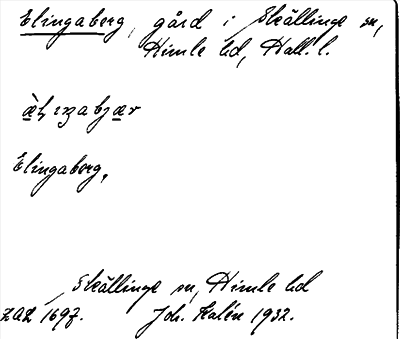 Elingaberg, gård i Skällinge sn,
Himle hd, Hall. l.
Elingaberg,
Skällinge sn, Himle hd
1697. Joh. Kalén 1932.